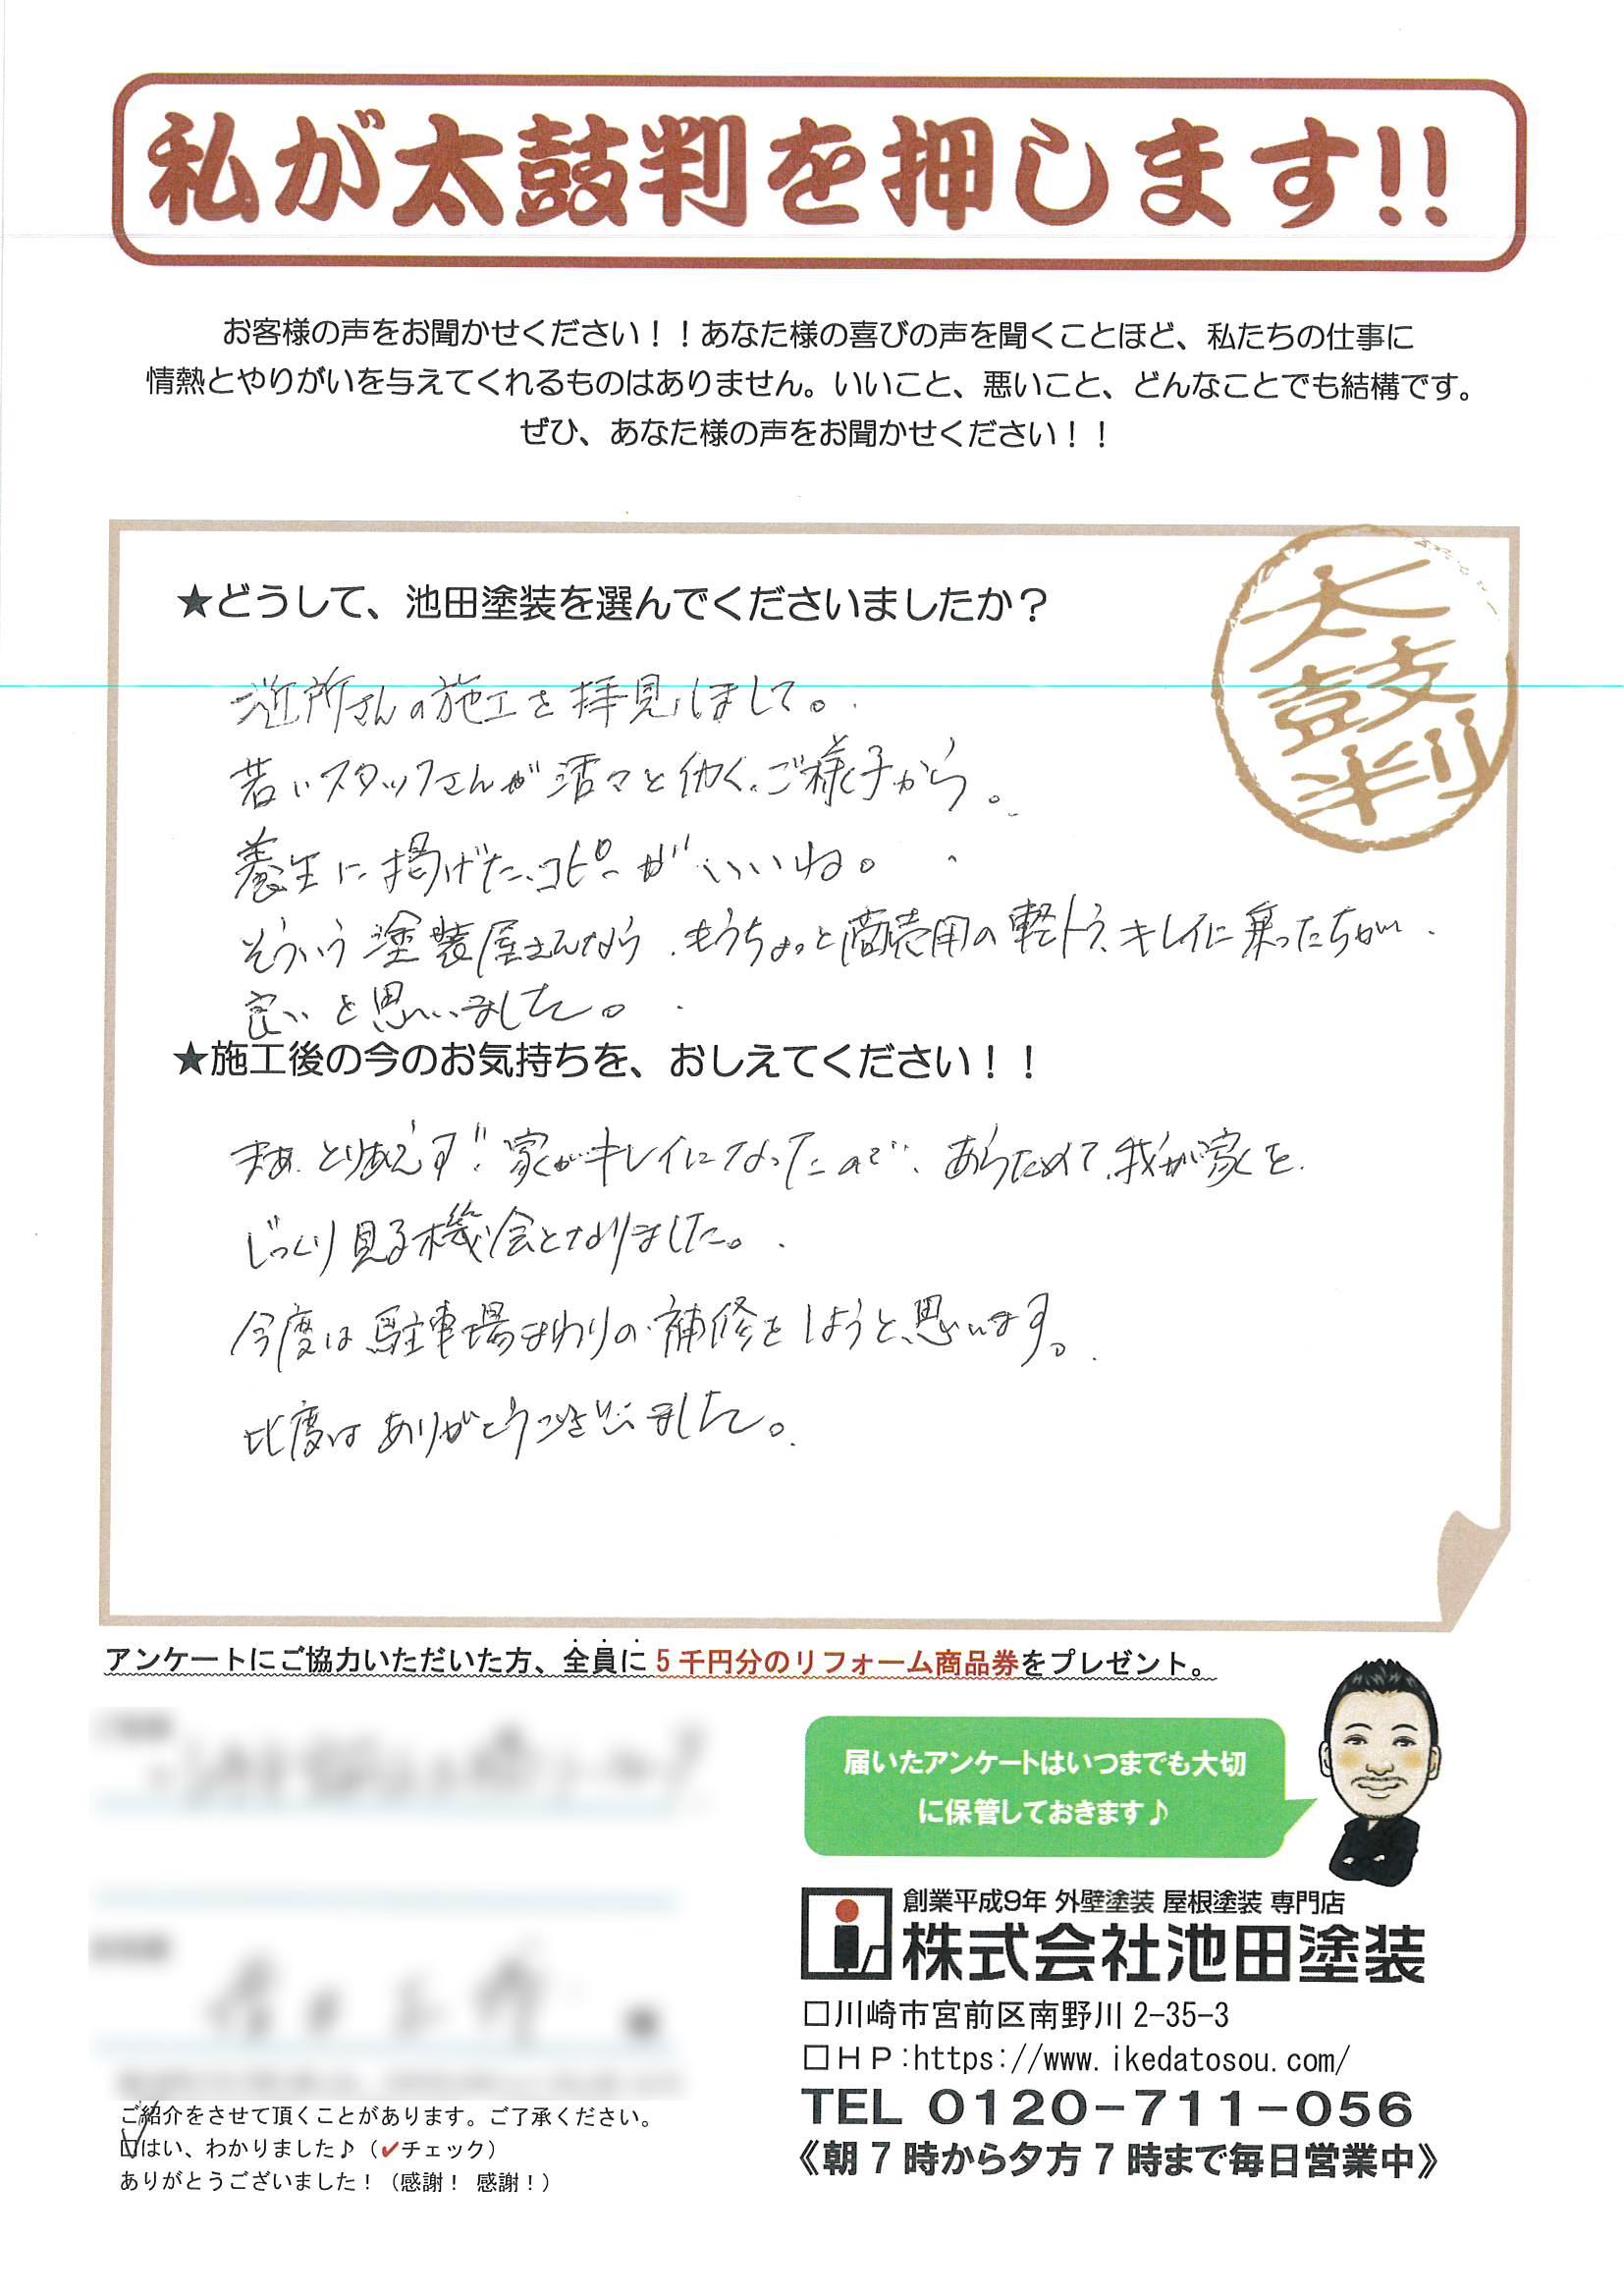 私が太鼓判を押します!!
お客様の声をお聞かせください！！あなた様の喜びの声を聞くことほど、私たちの仕事に
情熱とやりがいを与えてくれるものはありません。いいこと、悪いこと、どんなことでも結構です。
ぜひ、あなた様の声をお聞かせください！！
太鼓判
★どうして、池田塗装を選んでくださいましたか？
近所さんの施工を拝見しまして。
若いスタッフさんが活々と働くご様子から。
養生に掲げたコピーがいいね。
そういう塗装屋さんなら、もうちょっと商売用の軽トラ、キレイに乗ったらが
良いと思いました。
★施工後の今のお気持ちを、おしえてください！！
まあ、とりあえず、家がキレイになったので、あらためて、我が家を
じっくり見る機会となりました。
今度は駐車場まわりの補修をしようと思います。
此度はありがとうございました。
アンケートにご協力いただいた方、全員に5千円分のリフォーム商品券をプレゼント。
届いたアンケートはいつまでも大切
に保管しておきます♪
創業平成9年 外壁塗装 屋根塗装 専門店
株式会社池田塗装
□川崎市宮前区南野川 2-35-3
□ＨＰ:https://www.ikedatosou.com/
TEL 0120-711-056
《朝７時から夕方７時まで毎日営業中》
ご紹介をさせて頂くことがあります。ご了承ください。
☑はい、わかりました♪（✓チェック）
ありがとうございました！（感謝！ 感謝！）